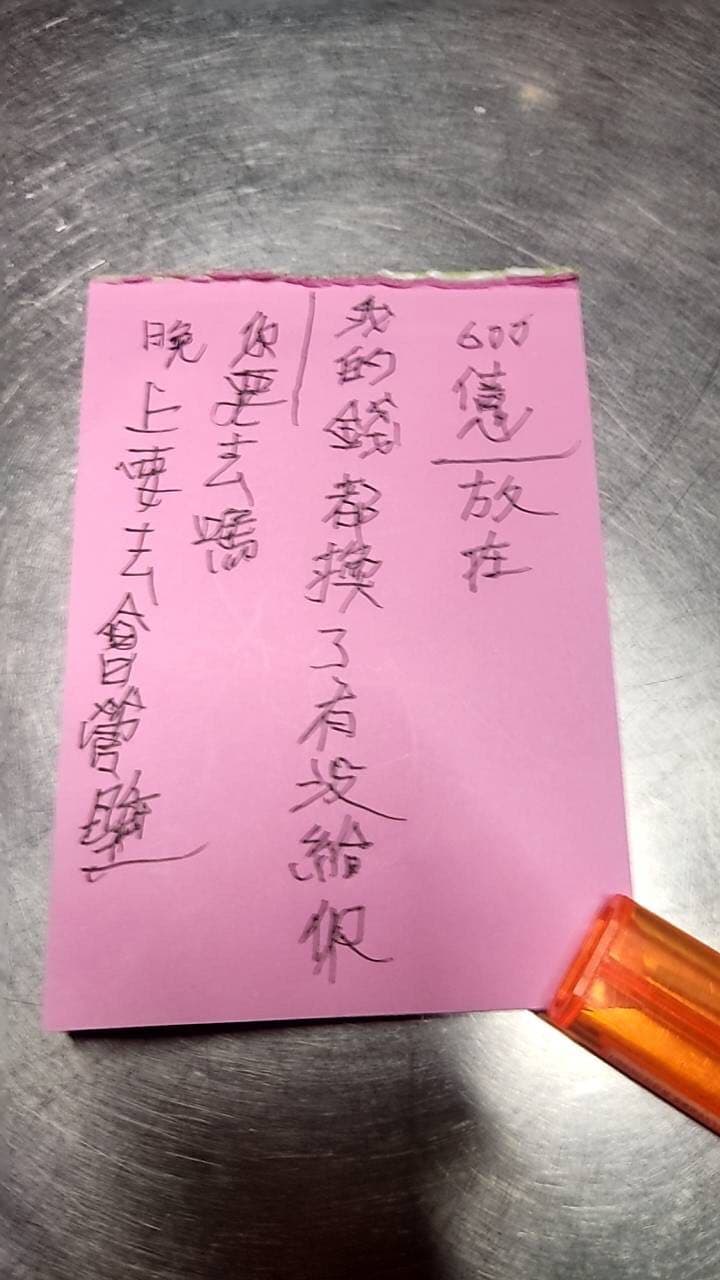 600億放在
我的錢都換了有沒給你
你要去嗎
晚上要去會營